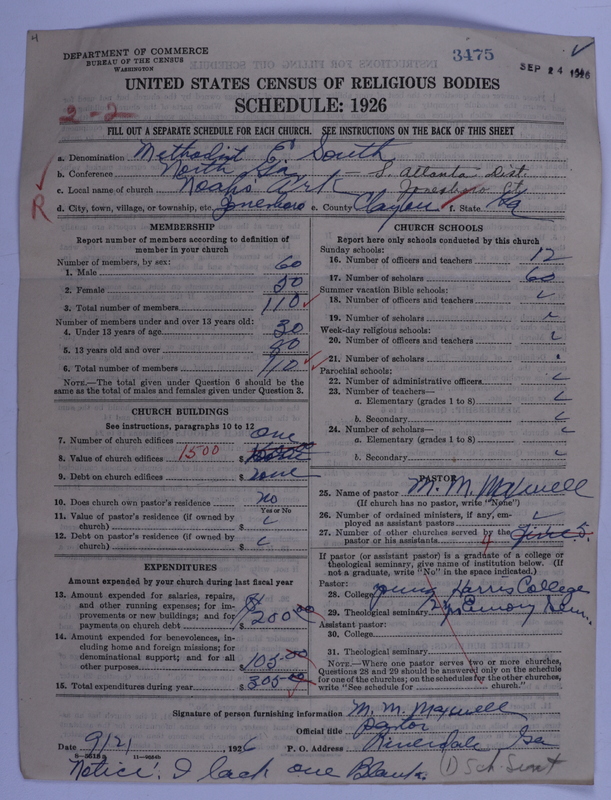 DEPARTMENT OF COMMERCE
BUREAU OF THE CENSUS
WASHINGTON
3475
SEP 24 1926
UNITED STATES CENSUS OF RELIGIOUS BODIES
SCHEDULE: 1926
2-2
FILL OUT A SEPARATE SCHEDULE FOR EACH CHURCH. SEE INSTRUCTIONS ON THE BACK OF THIS SHEET
a. Denomination Methodist E. South
b. Conference North Ga — S. Atlanta Dist.
c. Local name of church Noah's Ark Jonesboro Ct
R
d. City, town, village, or township, etc. Jonesboro e. County Clayton f. State Ga
MEMBERSHIP
Report number of members according to definition of member in your church
Number of members, by sex:
1. Male 60
2. Female 50
3. Total number of members 110
Number of members under and over 13 years old:
4. Under 13 years of age 30
5. 13 years old and over
6. Total number of members 110
NOTE.—The total given under Question 6 should be the same as the total of males and females given under Question 3.
CHURCH BUILDINGS
See instructions, paragraphs 10 to 12
7. Number of church edifices one
8. Value of church edifices 1500 $
9. Debt on church edifices $ none
10. Does church own pastor's residence no
Yes or No
11. Value of pastor's residence (if owned by church) $
12. Debt on pastor's residence (if owned by church) $
EXPENDITURES
Amount expended by your church during last fiscal year
13. Amount expended for salaries, repairs, and other running expenses; for improvements or new buildings; and for payments on church debt $ 200 00
14. Amount expended for benevolences, including home and foreign missions; for denominational support; and for all other purposes $ 105.00
15. Total expenditures during year $ 305.00
CHURCH SCHOOLS
Report here only schools conducted by this church
Sunday schools:
16. Number of officers and teachers 12
17. Number of scholars 60
Summer vacation Bible schools:
18. Number of officers and teachers
19. Number of scholars
Week-day religious schools:
20. Number of officers and teachers
21. Number of scholars
Parochial schools:
22. Number of administrative officers
23. Number of teachers—
a. Elementary (grades 1 to 8)
b. Secondary
24. Number of scholars—
a. Elementary (grades 1 to 8)
b. Secondary
PASTOR
25. Name of pastor M. M. Maxwell
(If church has no pastor, write "None")
26. Number of ordained ministers, if any, employed as assistant pastors
27. Number of other churches served by the pastor or his assistants 4 five 5
If pastor (or assistant pastor) is a graduate of a college or theological seminary, give name of institution below. (If not a graduate, write "No" in the space indicated.)
Pastor:
28. College Young Harris College
29. Theological seminary Emory
Assistant pastor:
30. College
31. Theological seminary
NOTE.—Where one pastor serves two or more churches, Questions 28 and 29 should be answered only on the schedule for one of the churches; on the schedules for the other churches, write "See schedule for church."
Signature of person furnishing information M. M. Maxwell
Official title Pastor
Date 9/21, 1926 P. O. Address Riverdale Ga
Notice: I lack one Blank. (1) Sch. Sent